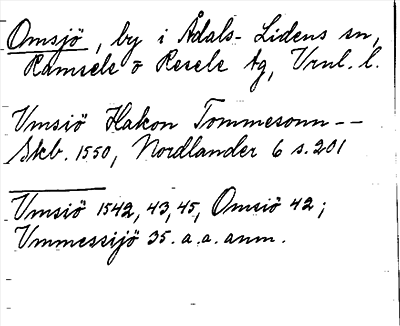 Omsjö, by i Ådals-Lidens sn,
Ramsele o Resele tg, Vrnl. l.
Umsiö Hakon Tommesonn--
Skb. 1550, Nordlander 6 s. 201
Umsiö 1542, 43, 45, Omsiö 42;
Ummessijö 35. a. a. anm.